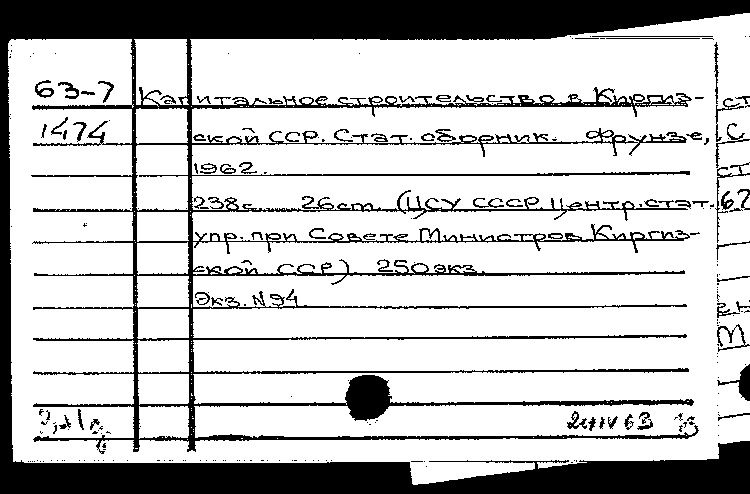 63-7 Капитальное строительство в Киргиз-
1474 ской ССР. Стат. сборник. Фрунзе,
1962.
238с. 26см. (ЦСУ СССР. Центр. стат.
упр. при Совете Министров Киргиз-
ской ССР). 250 экз.
Экз. N94.